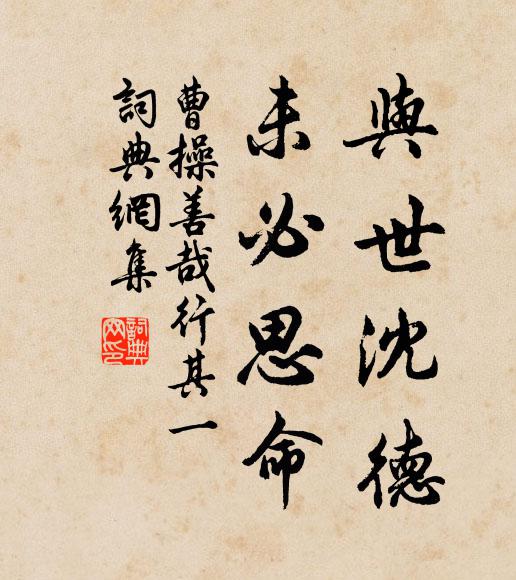 與世沈德
未必思命
曹操善哉行其一
詞典網集
詞典網印